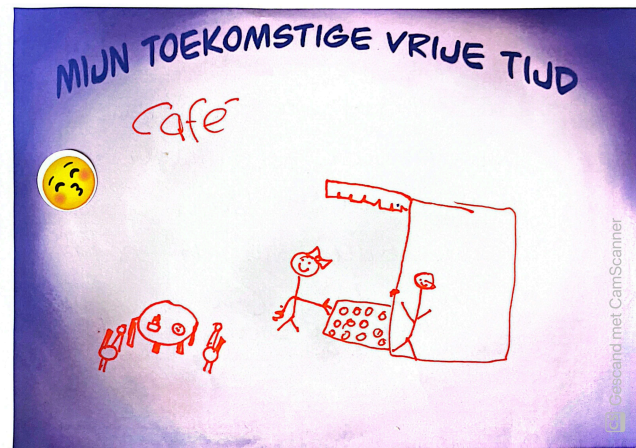 MIJN TOEKOMSTIGE VRIJE TIJD
Café
Gescand met CamScanner